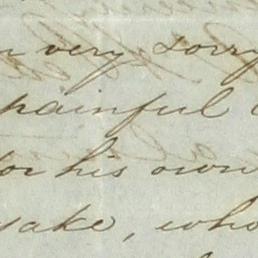 very sorry
painful
for his own
sake, who